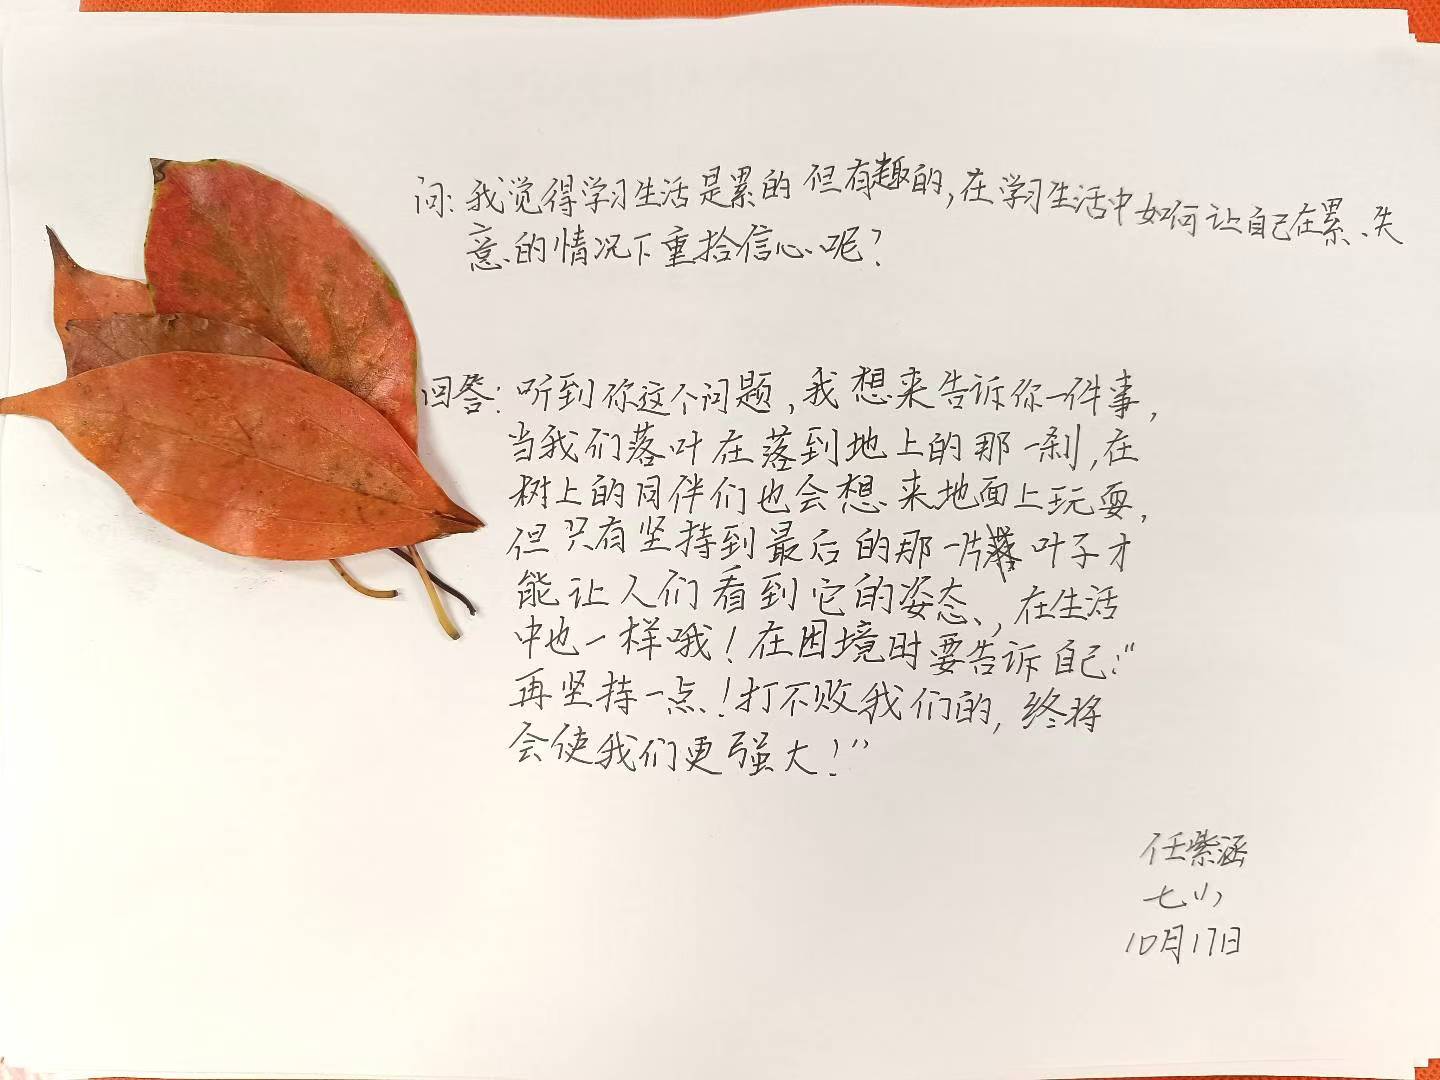 问:我觉得学习生活是累的但有趣的,在学习生活中如何让自己在累、失
意的情况下重拾信心呢?
回答:听到你这个问题,我想来告诉你一件事,
当我们落叶在落到地上的那一刹,在
树上的同伴们也会想来地面上玩耍,
但只有坚持到最后的那一片叶子才
能让人们看到它的姿态、,在生活
中也一样哦!在困境时要告诉自己:"
再坚持一点!打不败我们的,终将
会使我们更强大!"
任紫涵
10月17日